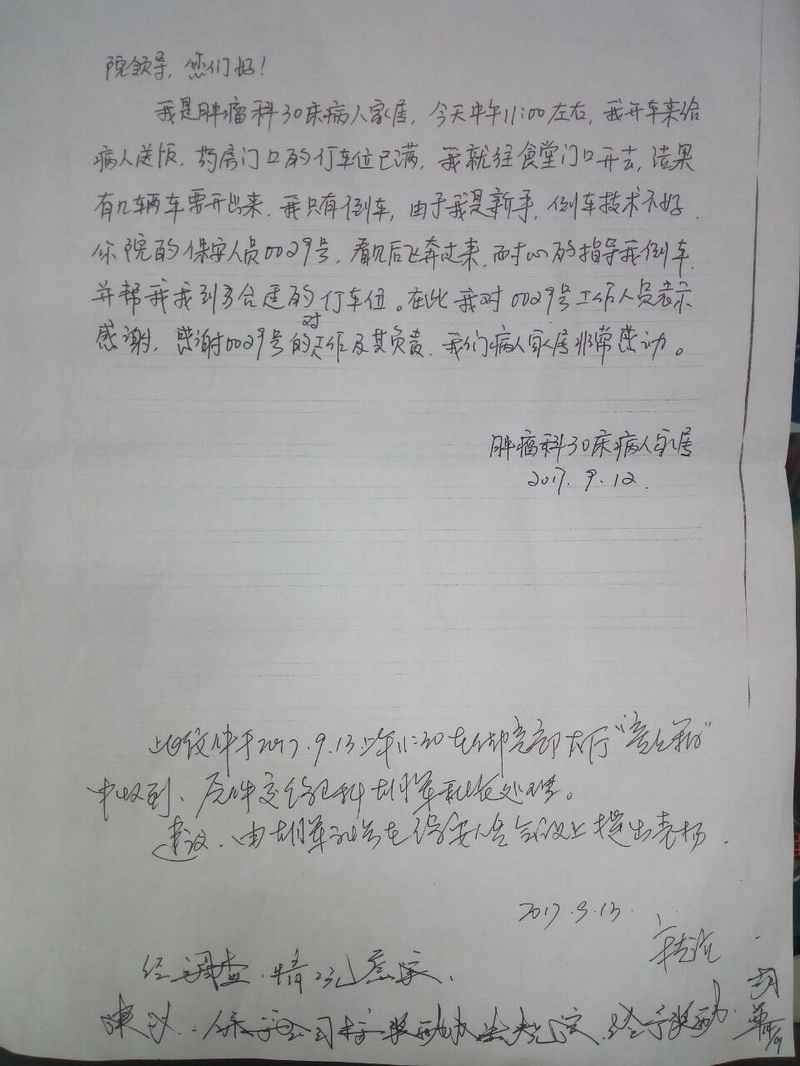 院领导，您们好！
我是肿瘤科30床病人家属，今天中午11:00左右，我开车来给
病人送饭，药房门口的停车位已满，我就往食堂门口开去，结果
有几辆车要开出来，我只有倒车，由于我是新手，倒车技术不好，
你院的保安人员0029号，看见后飞奔过来，耐心的指导我倒车，
并帮我找到了合适的停车位。在此我对0029号工作人员表示
感谢，感谢0029号的对工作极其负责，我们病人家属非常感动。
肿瘤科30床病人家属
2017.9.12.
此件于2017.9.13上午11:30在门诊部大厅“意见箱”
中收到，原件交给 科胡 军 处理。
建议，由胡军 在保安人员会议上提出表扬．
2017.9.13.
经调查，情况属实，
建议：保安公司按奖励办法规定，给予奖励．